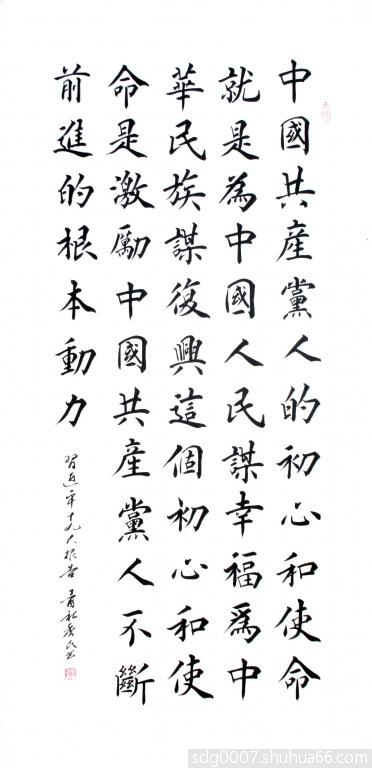 中國共產黨人的初心和使命
就是為中國人民謀幸福為中
華民族謀復興這個初心和使
命是激勵中國共產黨人不斷
前進的根本動力
習近平十九大报告
sdg0007.shuhua66.com